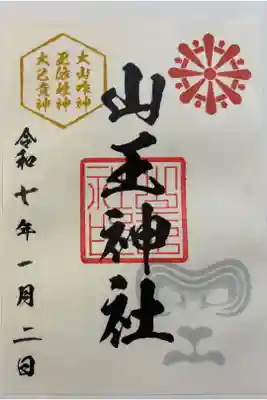 大山咋神
玉依姫神
大己貴神
山王神社
令和七年一月二日